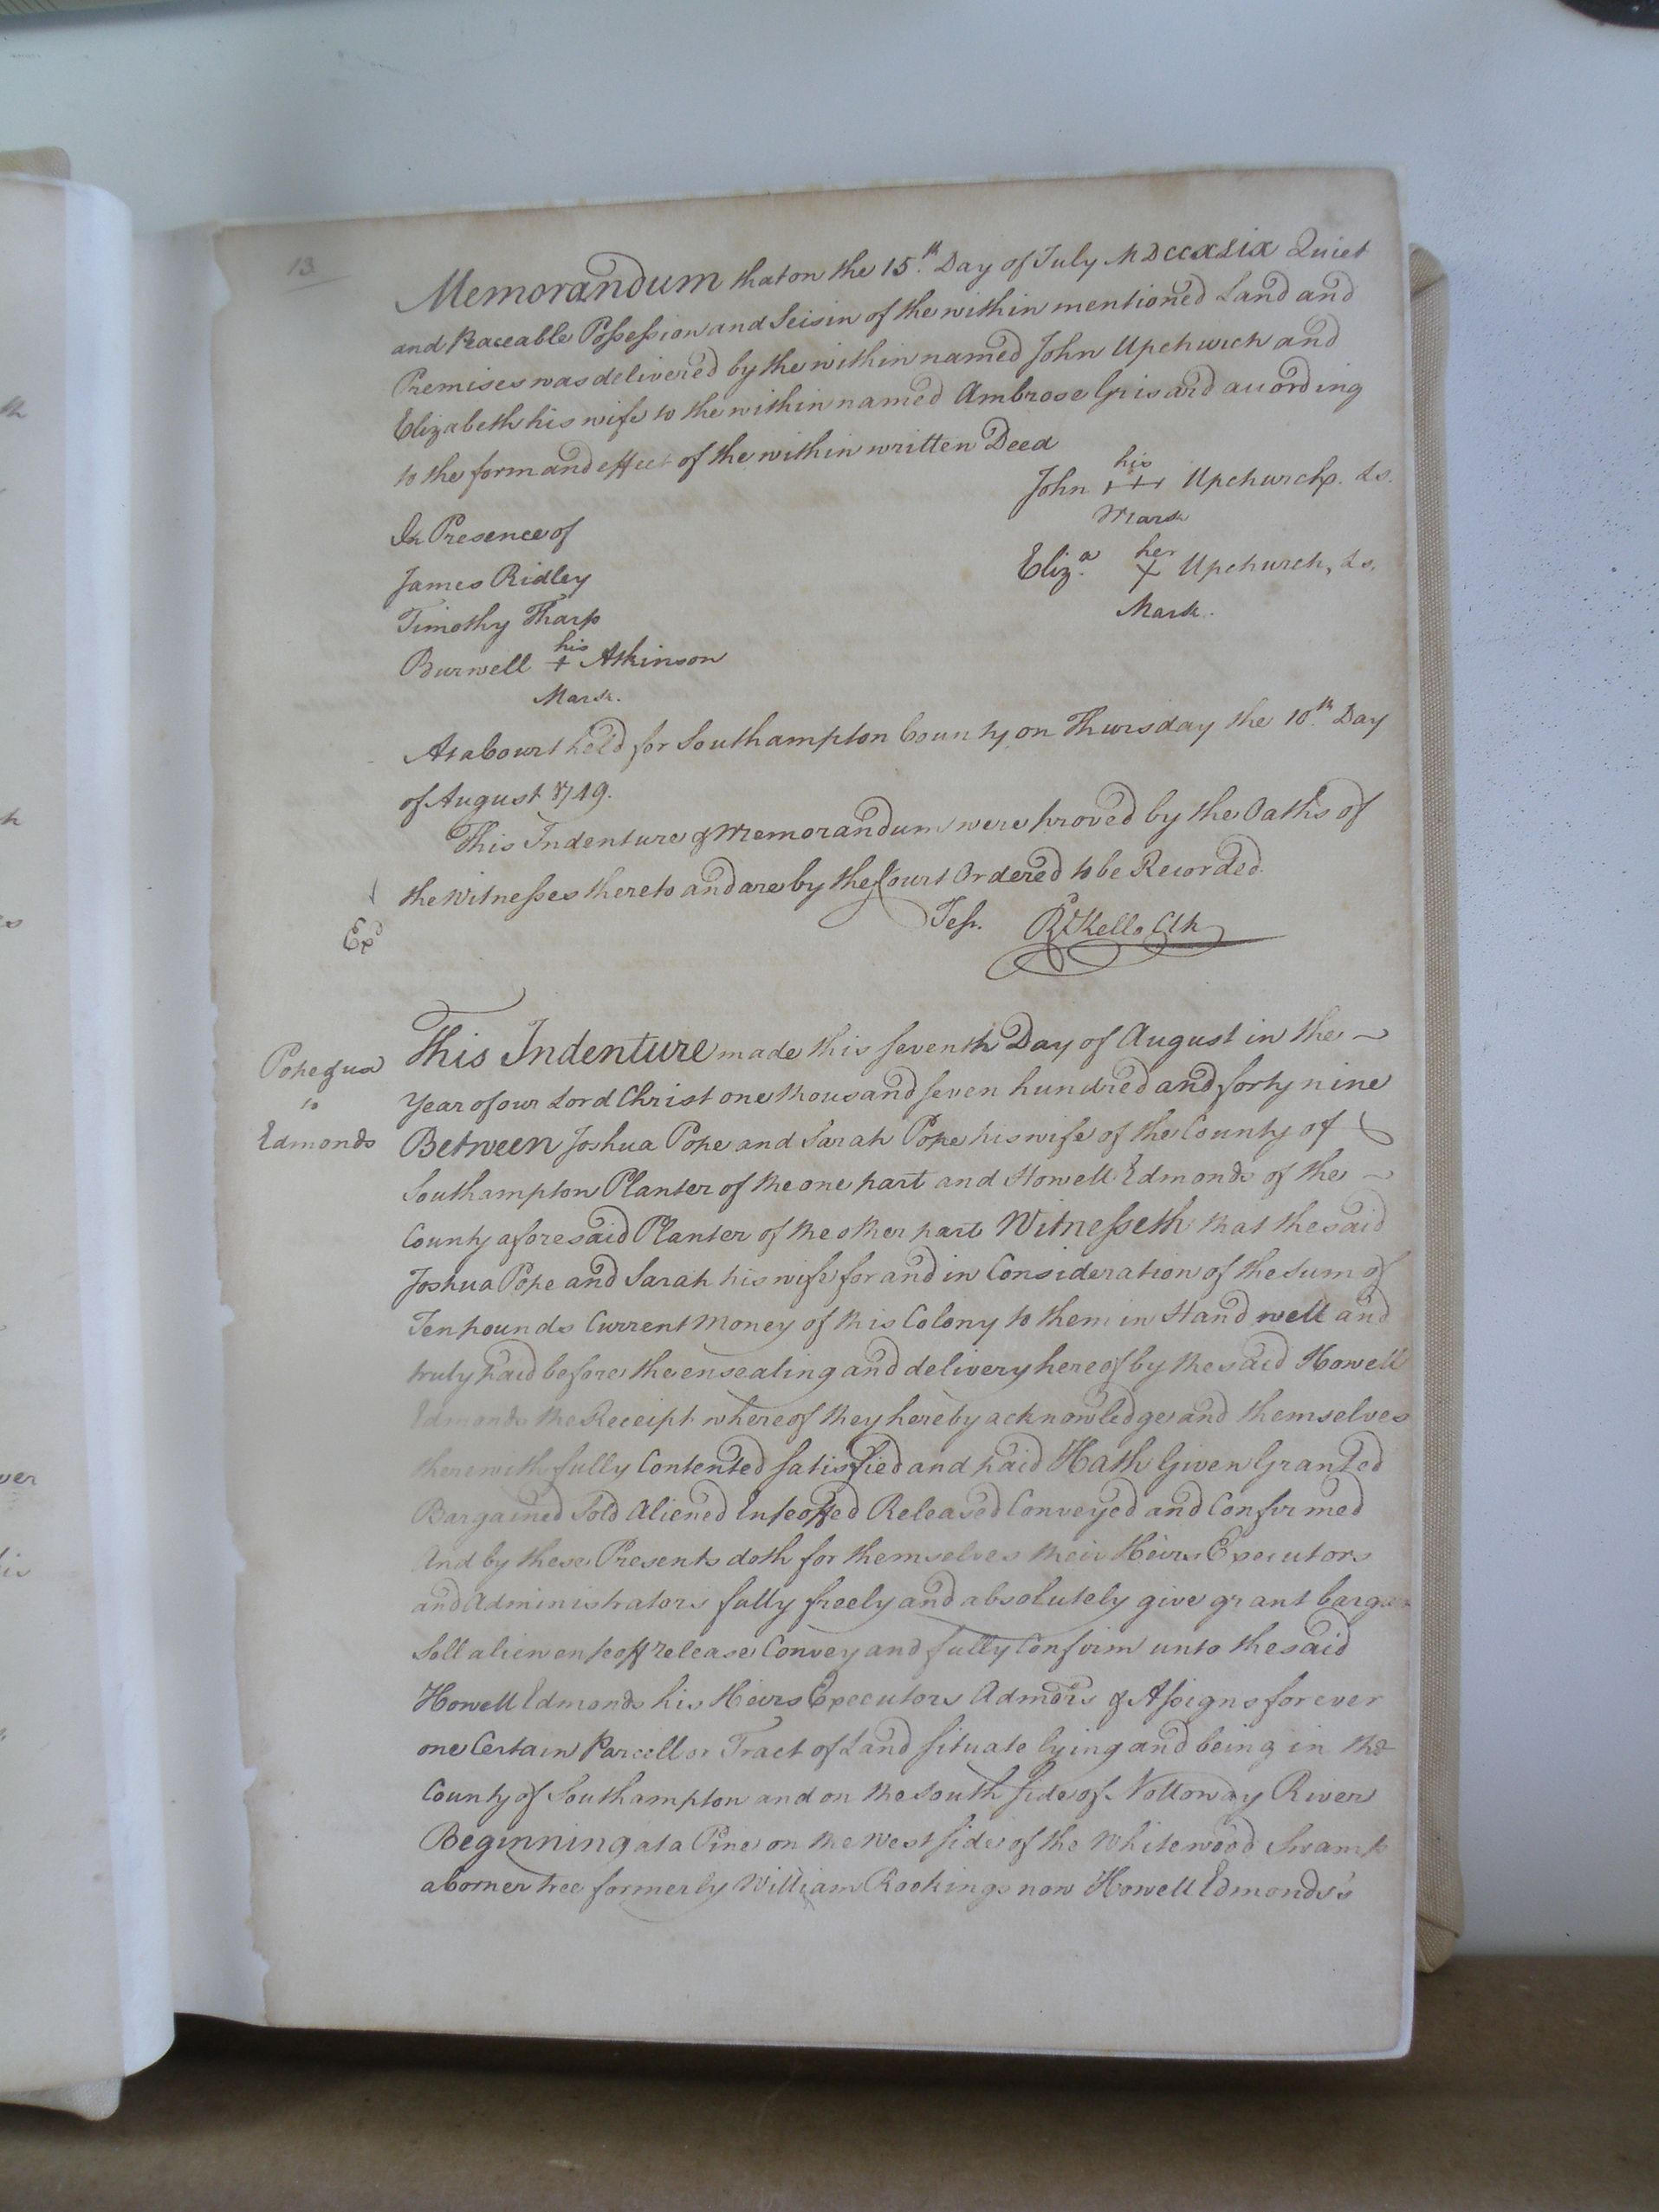 13
Memorandum that on the 15.th Day of July MDCCXLIX Quiet
and Peaceable Possession and Seisin of the within mentioned Land and
Premises was delivered by the within named John Upchurch and
Elizabeth his wife to the within named Ambrose Grisard according
to the form and effect of the within written Deed
his
John +++ Upchurch. Ls.
Mark
In Presence of
her
Eliz.a X Upchurch, Ls.
Mark.
James Ridley
Timothy Tharp
his
Burwell + Atkinson
Mark.
At a Court held for Southampton County on Thursday the 10.th Day
of August 1749.
This Indenture & Memorandum were proved by the Oaths of
the Witnesses thereto and are by the Court Ordered to be Recorded.
Test. Rd Kello Clk
Exd
Pope & ux
to
Edmonds
This Indenture made this seventh Day of August in the
Year of our Lord Christ one thousand seven hundred and forty nine
Between Joshua Pope and Sarah Pope his wife of the County of
Southampton Planter of the one part and Howell Edmonds of the
County aforesaid Planter of the other part Witnesseth that the said
Joshua Pope and Sarah his wife for and in Consideration of the Sum of
Ten pounds Current Money of this Colony to them in Hand well and
truly paid before the ensealing and delivery hereof by the said Howell
Edmonds the Receipt whereof they hereby acknowledge and themselves
therewith fully Contented satisfied and paid Hath Given Granted
Bargained Sold Aliened Enfeoffed Released Conveyed and Confirmed
And by these Presents doth for themselves their Heirs Executors
and Administrators fully freely and absolutely give grant bargain
Sell alien enfeoff release Convey and fully Confirm unto the said
Howell Edmonds his Heirs Executors Admors & Assigns forever
one Certain Parcell or Tract of Land situate lying and being in the
County of Southampton and on the South side of Nottoway River
Beginning at a Pine on the West side of the Whitewood Swamp
a Corner tree formerly William Rookings now Howell Edmonds's